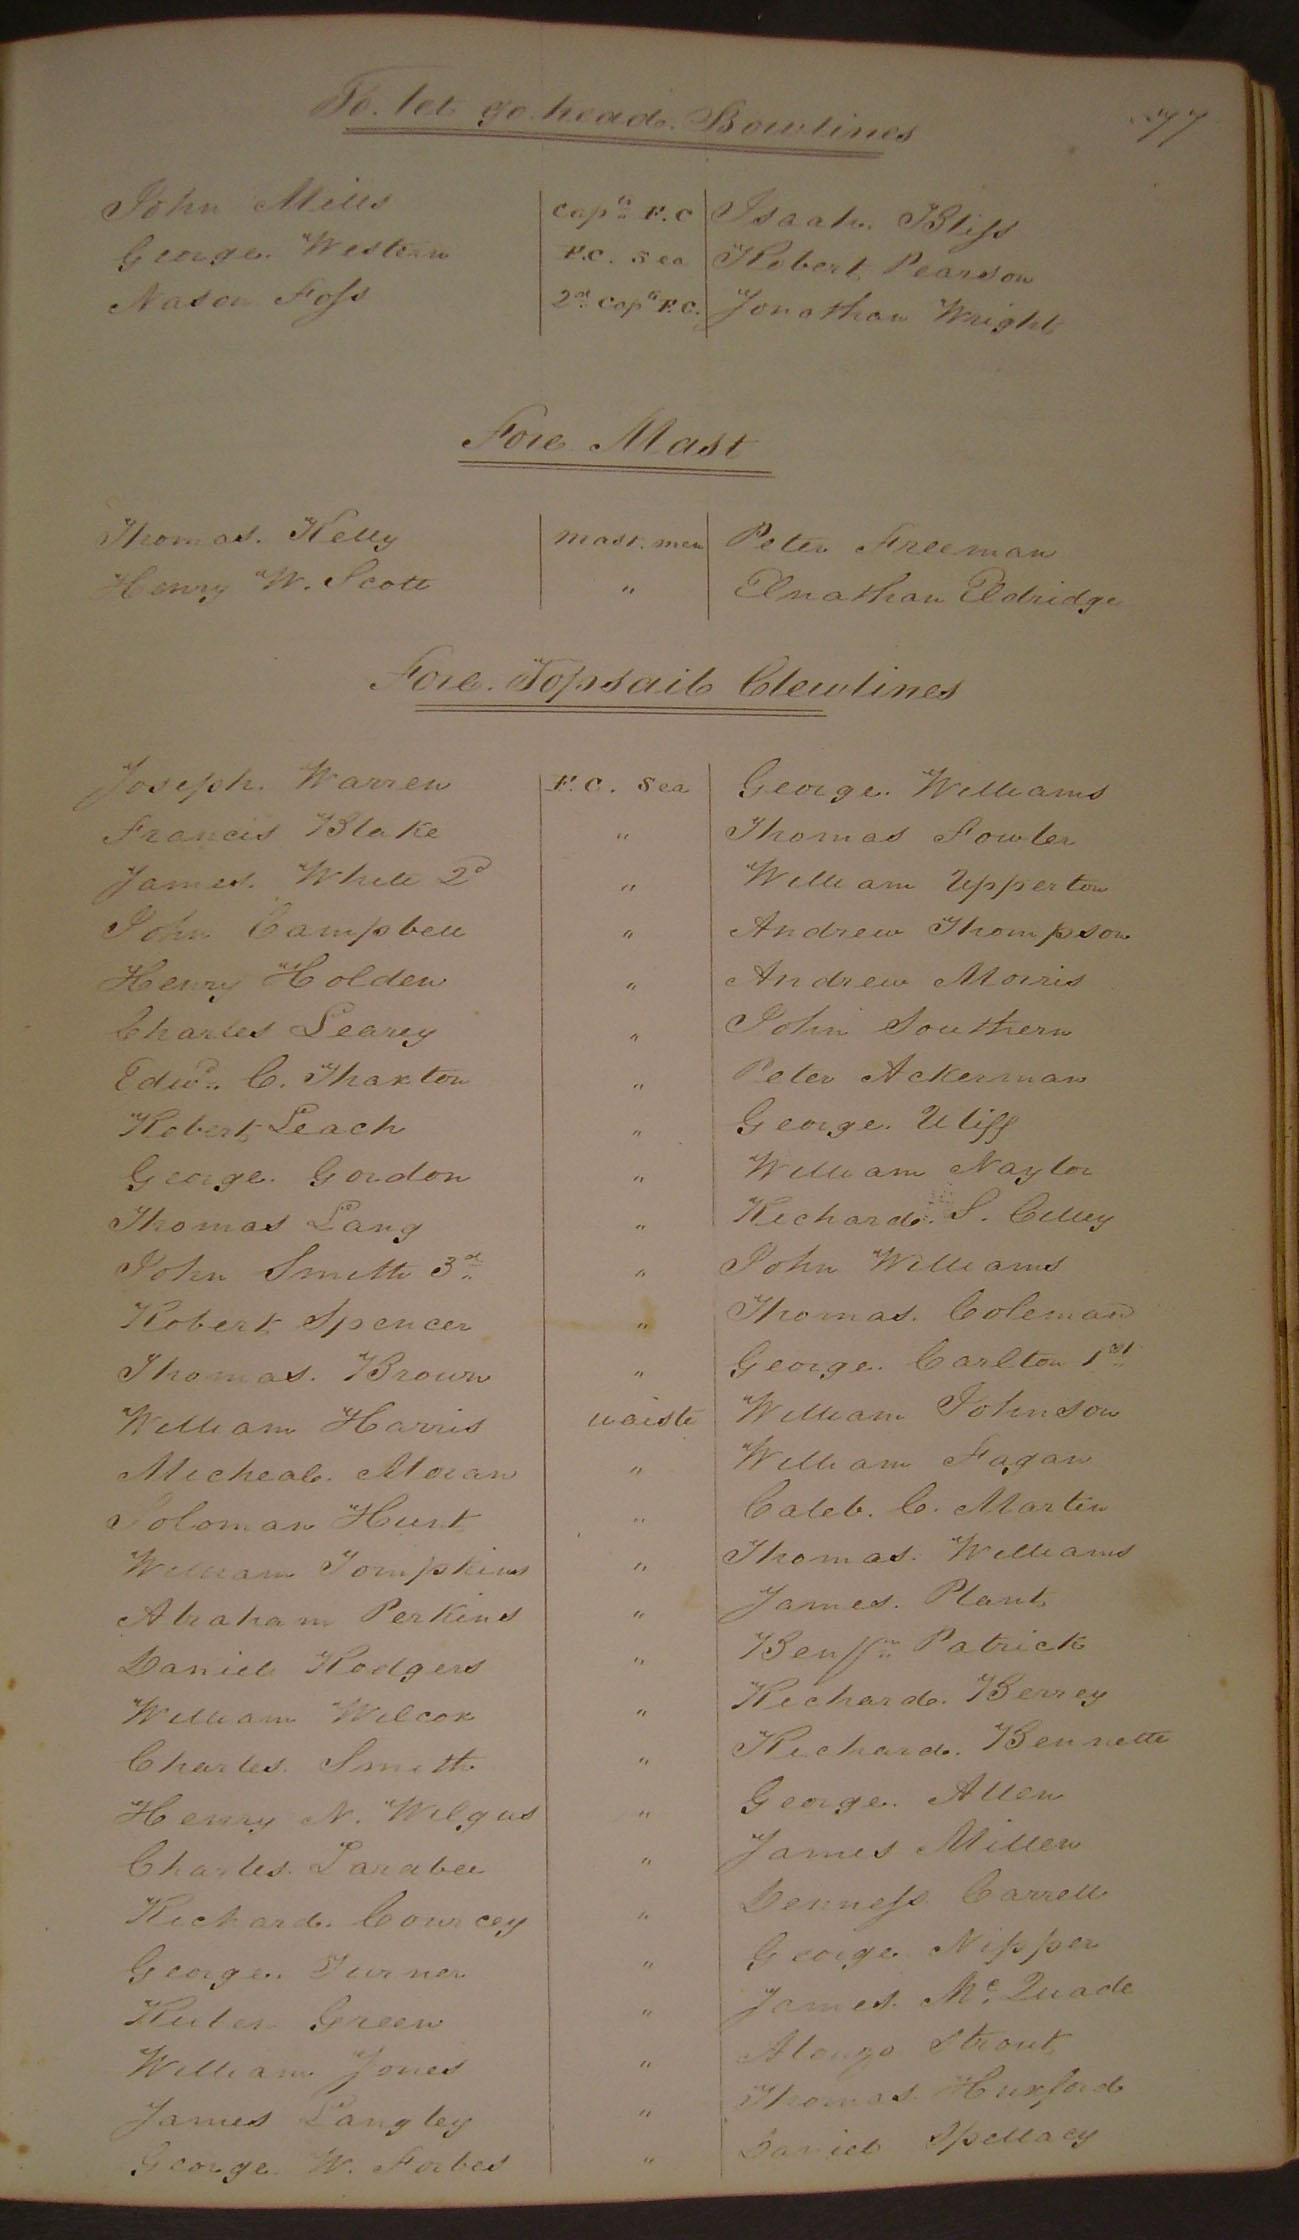 To let go head Bowlines
77
John Mills Capn F.C Isaah Bliss
George Western F.C. Sea Robert Pearson
Nason Foss 2d Capn F.C. Jonathan Wright
Fore Mast
Thomas Kelly mast men Peter Freeman
Henry W. Scott " Elnathan Eldridge
Fore Topsail Clewlines
Joseph Warren F.C. Sea George Williams
Francis Blake " Thomas Fowler
James White 2d " William Upperton
John Campbell " Andrew Thompson
Henry Holden " Andrew Morris
Charles Learey " John Southern
Edwd C. Thaxton " Peter Ackerman
Robert Leach " George Uliff
George Gordon " William Naylor
Thomas Lang " Richard S. Cilley
John Smith 3d " John Williams
Robert Spencer " Thomas Coleman
Thomas Brown " George Carlton 1st
William Harris waist William Johnson
Micheal Moran " William Fagan
Soloman Hunt " Caleb C. Martin
William Tompkins " Thomas Williams
Abraham Perkins " James Plant
Daniel Rodgers " Benjn Patrick
William Wilcox " Richard Berrey
Charles Smith " Richard Bennett
Henry N. Wilgus " George Allen
Charles Larabee " James Miller
Richard Courcey " Denness Carrell
George Turner " George Nipper
Ruben Green " James Mc Quade
William Jones " Alonzo Strout
James Langley " Thomas Huxford
George W. Forbes " Daniel Spellacy